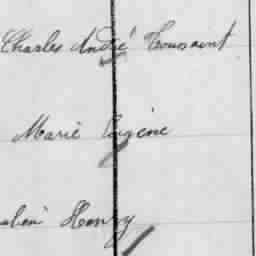 Charles André Toussaint
Marie Eugène
Henry